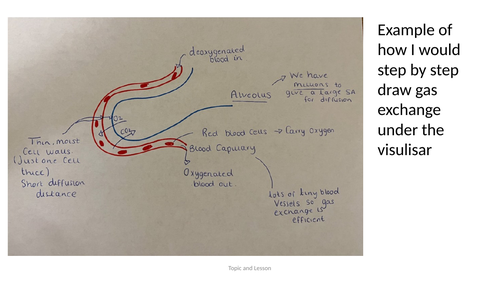 deoxygenated
blood in
We have
millions to
give a large SA
for diffusion
Alveolus
O2
CO2
Red blood cells → Carry Oxygen
Blood Capillary
Thin, moist
Cell walls.
(Just one cell
thick)
Short diffusion
distance
Oxygenated
blood out.
Lots of tiny blood
Vessels so gas
exchange is
efficient
Example of
how I would
step by step
draw gas
exchange
under the
visulisar
Topic and Lesson